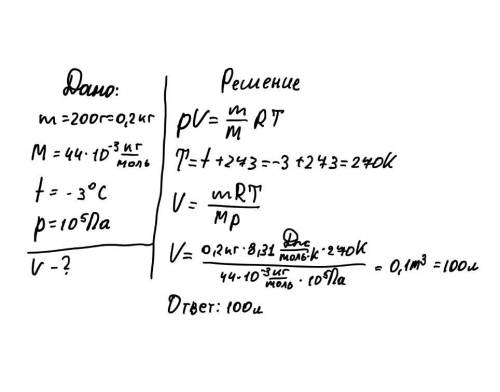 Дано:
m = 200г = 0,2 кг
M = 44·10⁻³ кг/моль
t = -3°C
p = 10⁵Па
V - ?
Решение
pV = m/M RT
T = t + 273 = -3 + 273 = 270K
V = mRT/Mp
V = 0,2кг · 8,31 Дж/моль·К · 270К / 44·10⁻³ кг/моль · 10⁵Па = 0,1м³ = 100л
Ответ: 100л